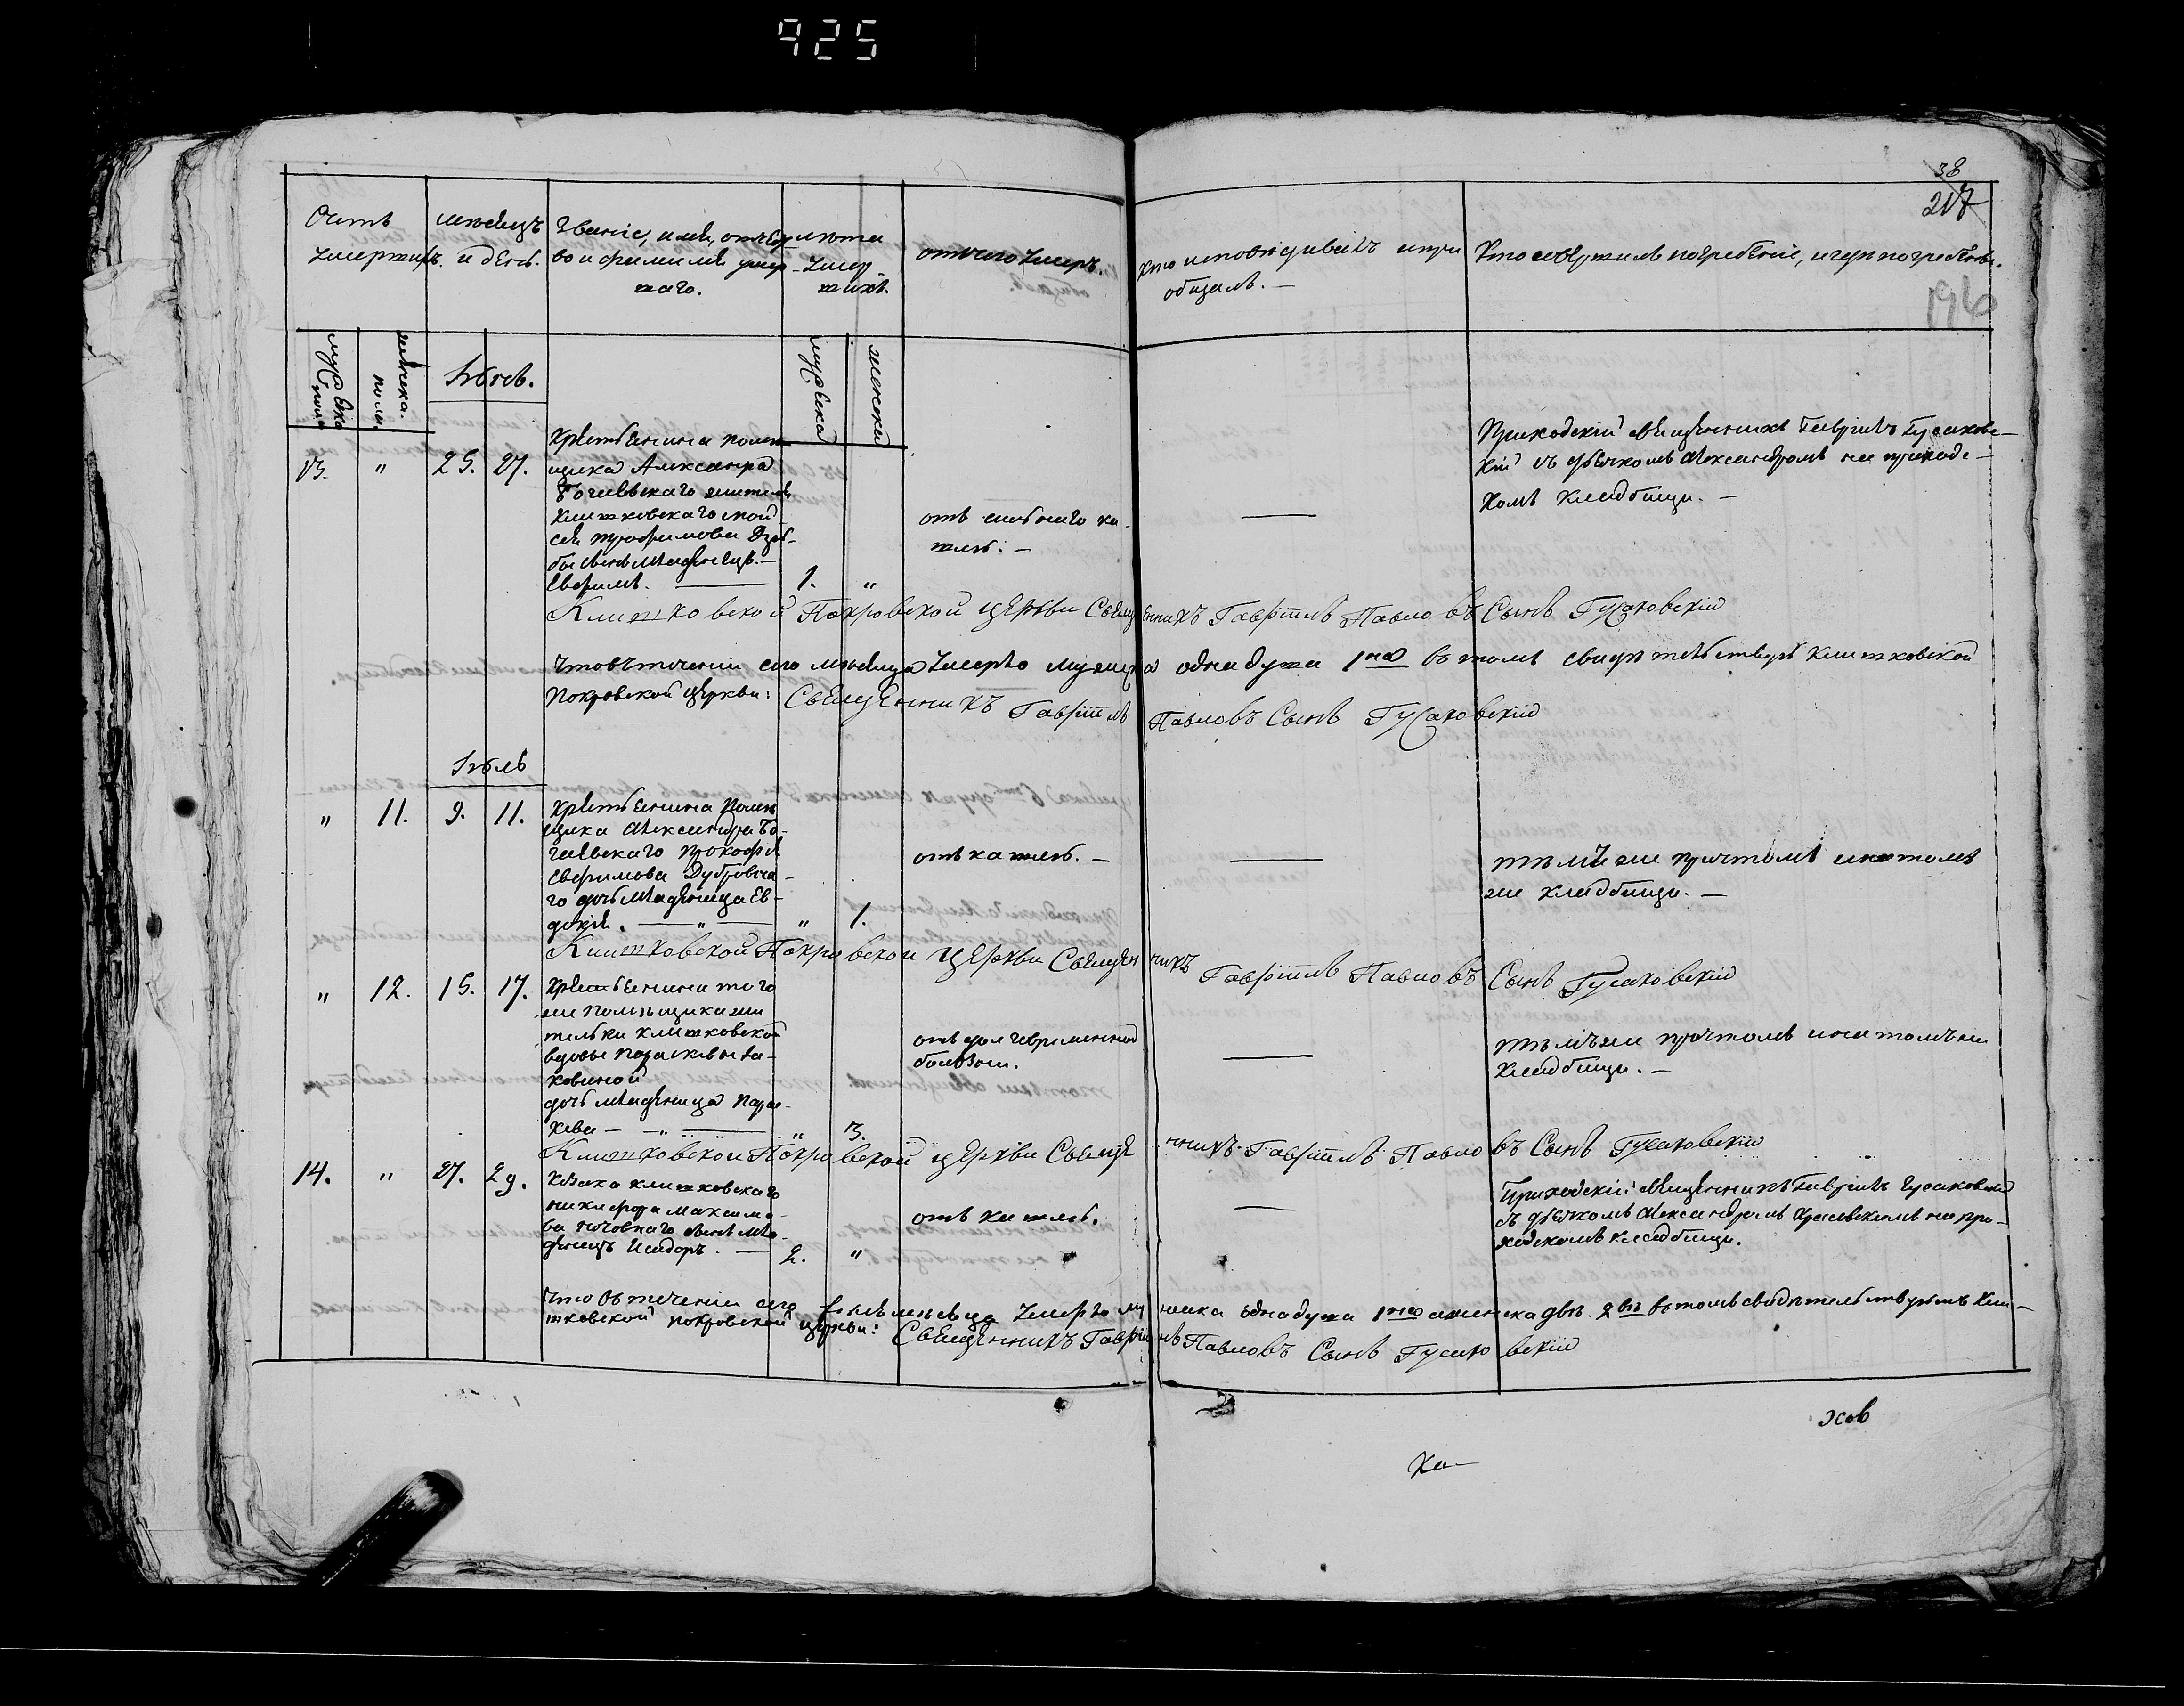 925
38
217
196
Счетъ умершихъ.
месяцъ и день.
Званіе, имя, отчест-
во и фамилія умер-
шаго.
лѣта
умер-
шихъ.
отчего умеръ.
кто исповѣдывалъ и при
общалъ. —
Кто совершилъ погребеніе, и где погребенъ.
мужска
пола
женска.
полу
Іюнь.
мужска
женска
13. " 25. 27.
Крестьянина помѣ
щика Александра
Богаевскаго жителя
Клишковскаго Мой
сея Трофимова
сынъ младенецъ. —
Евфимъ. — 1. "
отъ сильнаго ка-
шля. —
—
Приходскій священникъ Гавріилъ Гусаковс-
кій съ дьячкомъ Александромъ на приходс-
комъ кладбищи. —
Клишковской Покровской церкви Священникъ Гавріилъ Павловъ Сынъ Гусаковскій
Что въ теченіи сего месяца умерло мужеска одна душа 1на въ томъ свидѣтельствуетъ Клишковской
Покровской церкви: Священникъ Гавріилъ Павловъ Сынъ Гусаковскій
Іюль
" 11. 9. 11.
Крестьянина помѣ
щика Александра Бо-
гаевскаго Прокофія
Евфимова Дубровска-
го дочь младеница Ев-
докія. — " — " 1.
отъ кашля. —
—
тѣмъ же причтомъ и на томъ
же кладбищи. —
Клишковской Покровской церкви Священникъ Гавріилъ Павловъ Сынъ Гусаковскій
" 12. 15. 17.
Крестьянина того
же помѣщика жи
тельки Клишковской
вдовы Параскевы
ковиной
дочь младеница Парас-
кева — " — " 3.
отъ долговременной
болѣзни.
—
тѣмъ же причтомъ и на томъ же
кладбищи. —
Клишковской Покровской церкви Священникъ Гавріилъ Павловъ Сынъ Гусаковскій
14. " 27. 29.
Козака Клишковскаго
Никифора Максимо-
ва сынъ мла-
денецъ Исидоръ. — 2. "
отъ кашля.
—
Приходскій священникъ Гавріилъ Гусаковскій
съ дьячкомъ Александромъ на при-
ходскомъ кладбищи.
Что въ теченіи сего Іюля месяца умерло мужеска одна душа 1на а женска двѣ. 2вѣ въ томъ свидѣтельствуетъ Кли-
шковской Покровской церкви: Священникъ Гавріилъ Павловъ Сынъ Гусаковскій
ховъ
Ка-